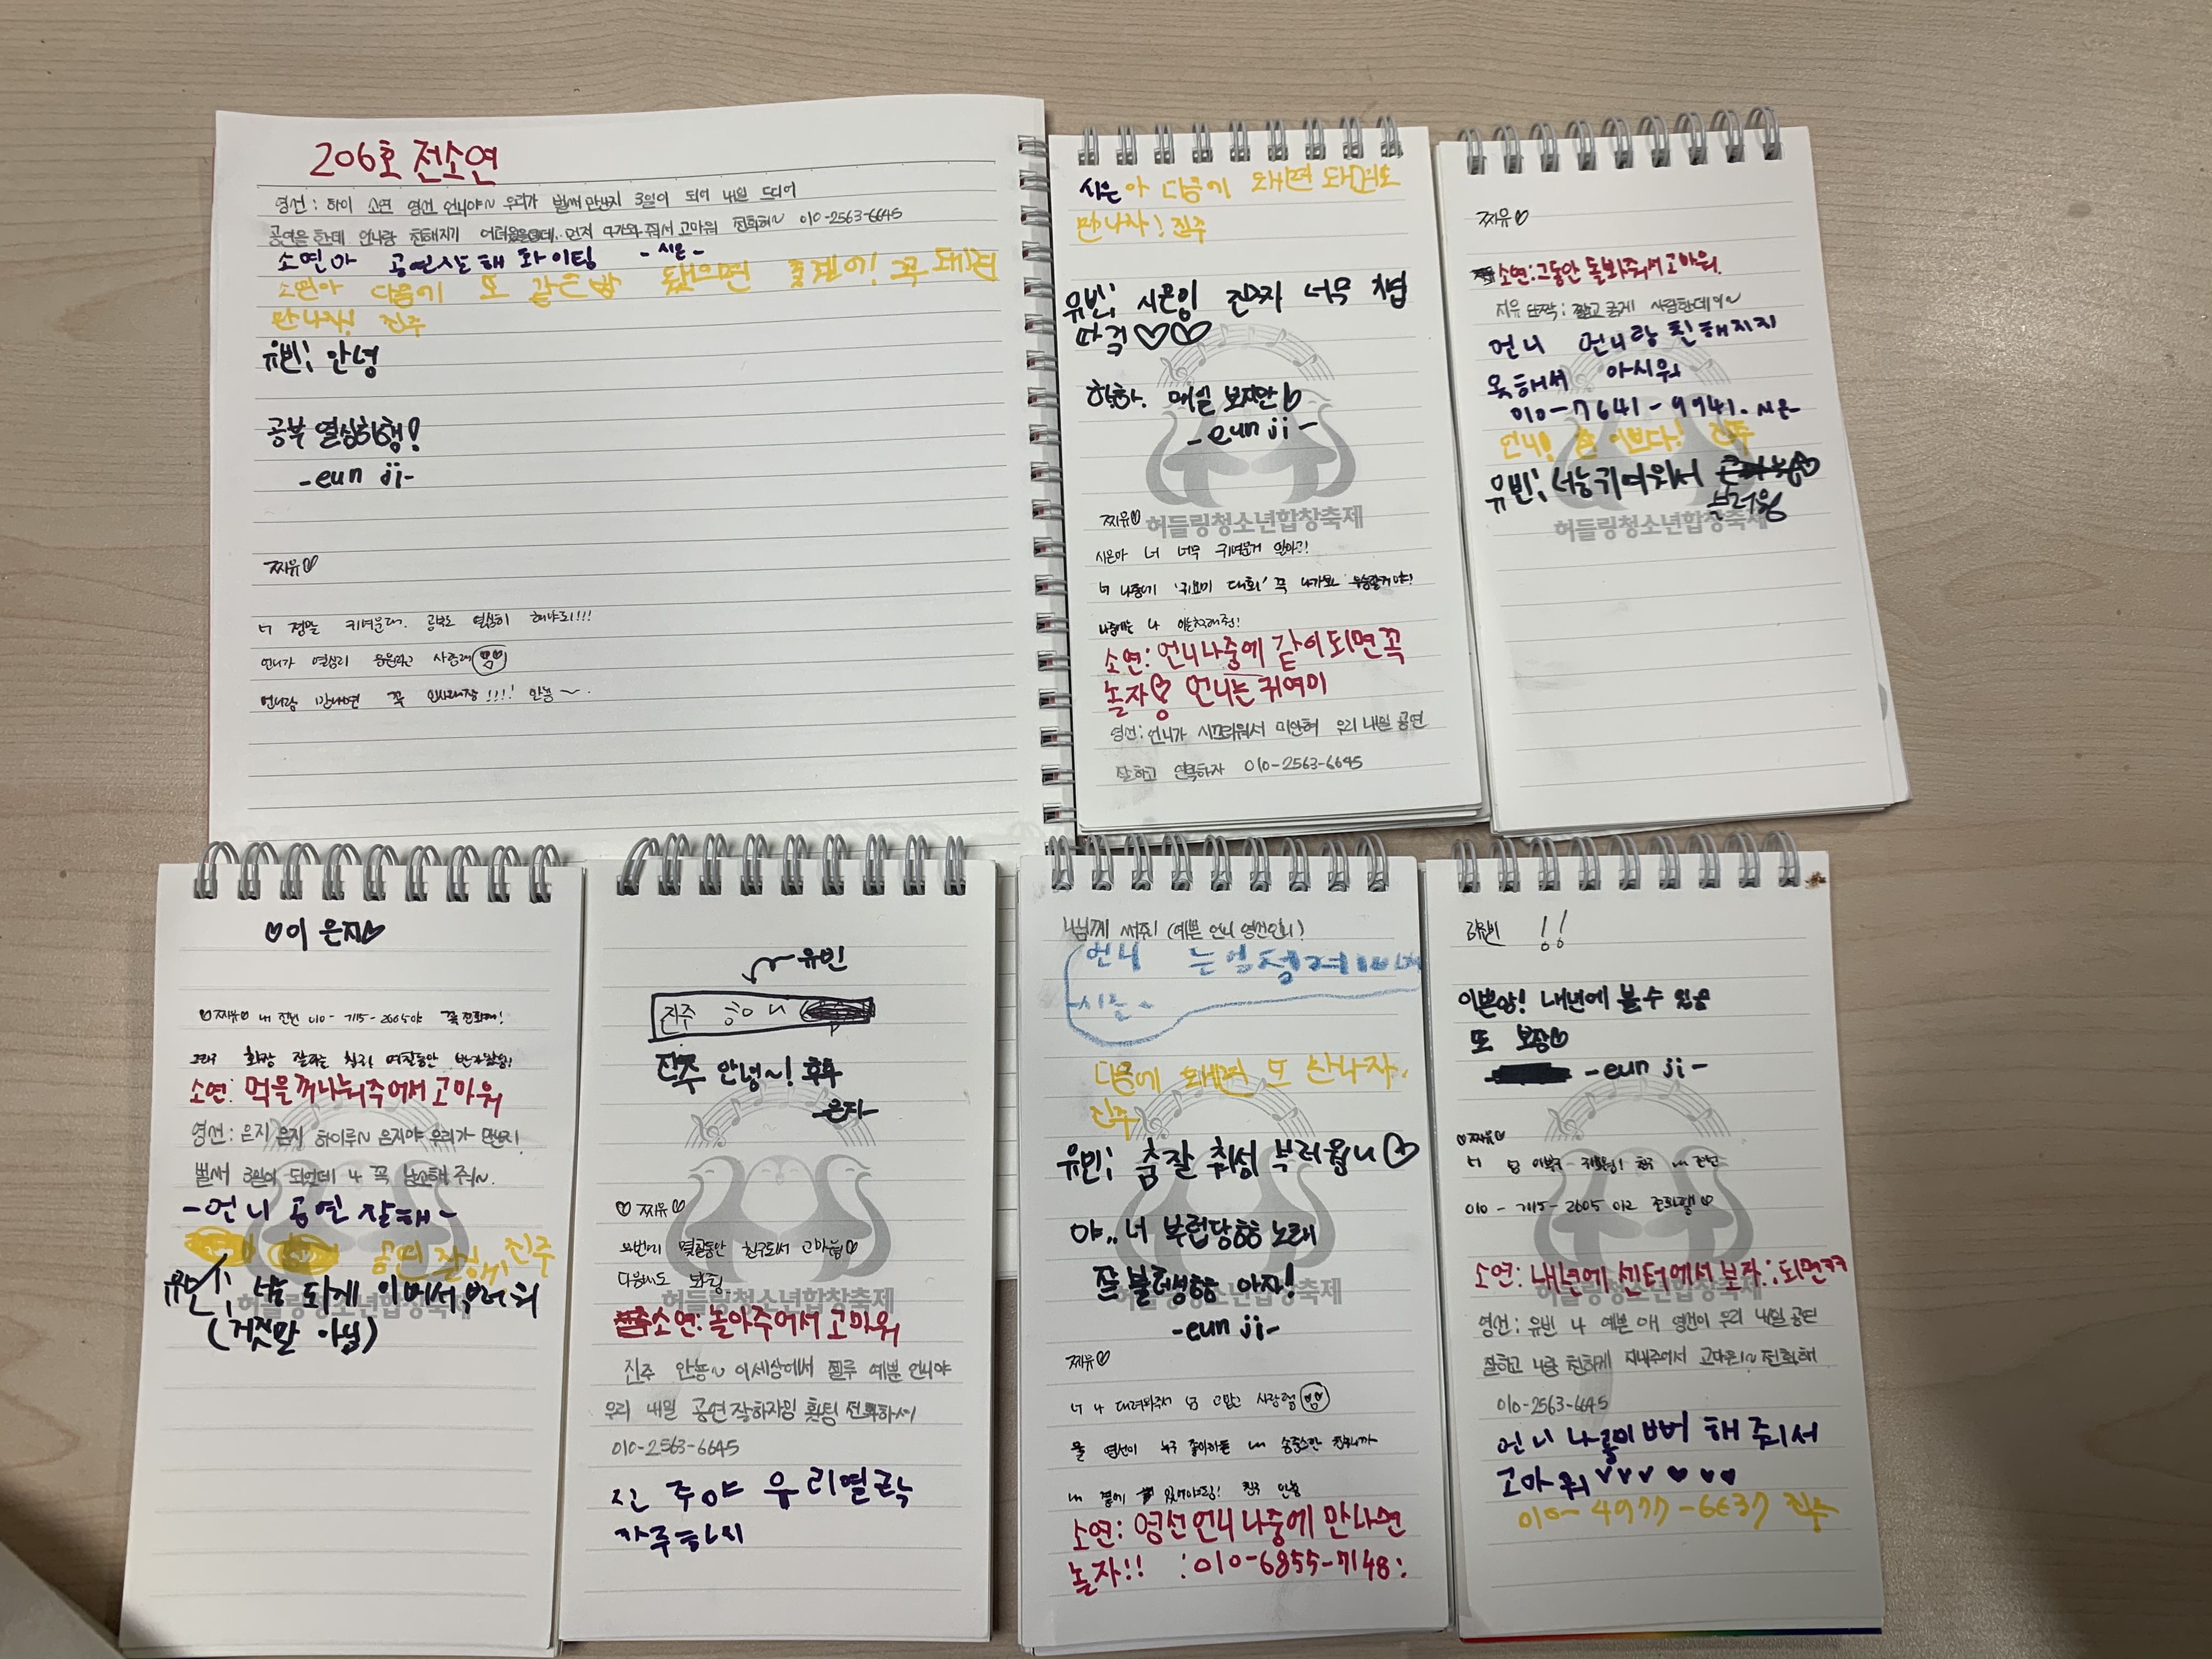 206호 전소연
영선: 하이 소연 영선 언니야~ 우리가 벌써 만난지 3일이 되어 내일 드디어
공연을 한데 언니랑 친해지기 어려웠을텐데.. 먼저 다가와 줘서 고마워 전화해~ 010-2563-6645
소연아 공연잘해 화이팅 -시은-
소연아 다음에 또 같은방 됐으면 좋겠어! 꼭 돼면
만나자! 진주
유빈: 안녕
공부 열심히행!
-eun ji-
찌유♡
너 정말 귀여운대. 공부도 열심히 해야되!!!
언니가 열심히 응원하고 사랑해
언니랑 만나면 꼭 인사해줭!!!! 안농~.
시은아 다음에 돼면 돼면또
만나자! 진주
유빈: 시은잉 진짜 너무 귀엽
따긔♡♡
핳하. 매일 보지만♭
-eun ji-
찌유♡
허들링청소년합창축제
시은아 너 너무 귀여운거 알아?!
너 나중에 '귀요미 대회' 꼭 나가봐 우승할거야!
나중에는 나
소연: 언니나중에 같이되면꼭
놀자 언니는귀여미
영선: 언니가 시끄러워서 미안혀 우리 내일 공연
잘하고 연락하자 010-2563-6645
찌유♡
소연: 그동안 돌봐줘서고마워.
지유 단짝: 짧고 굵게 사랑한데이~
언니 언니랑 친해지지
못해서 아시워
010-7641-9941. 시은-
언니! 이쁘다! 진주
유빈: 너는귀여워서
부러웡
허들링청소년합창축제
♡이 은지♡
♡찌유♡ 내 전번 010-7115-2605야 꼭 전화해!
그리구 화장 잘하는 칭긔! 며칠동안 반가웠엉!
소연: 먹을꺼나눠주어서고마워
영선: 은지 은지 하이루~ 은지야 우리가 만난지
벌써 3일이 되었는데 나 꼭 남소해 줘~.
-언니 공연 잘해~
공연 잘해! 진주
유빈: 넌 되게 이뻐서 부러워
허들링청소년합창축제
(거짓말 아님)
유빈
진주 하이
진주 안녕~! 후후
-은지-
♡찌유♡
몇일동안 친구되서 고마웡♡
다음에도 봐잉
허들링청소년합창축제
소연: 놀아주어서고마워
진주 안뇽~ 이세상에서 젤루 예쁜 언니야
우리 내일 공연잘하자잉 홧팅 전화하셔
010-2563-6645
진주야 우리열락
자주하시
나님께 써줘! (예쁜 언니 영선언니)
언니 는엄청
-시은-
다음에 돼면 또 만나자.
진주
유빈: 춤잘 춰성 부러웁니♡
야.. 너 부럽당 노래
잘 불러성 아자!
허들링청소년합창축제
-eun ji-
찌유♡
너 나 대려와줘서 넘 고맙고 사랑행
울 영선이 누구 좋아하든 내 소중스한 친구니까
내 곁에 있어야됭! 친구 안농
소연: 영선언니나중에 만나면
놀자!! :010-6855-7148:
김유빈 !!
이쁜양! 내년에 볼수 있음
또 보장♡
-eun ji-
♡찌유♡
너 넘 이쁘구 내 전번
010-7115-2605 야 전화행♡
소연: 내년에 센터에서 보자:되면ㅋㅋ
허들링청소년합창축제
영선: 유빈 나 예쁜 애 영선이 우리 내일 공연
잘하고 나랑 친하게 지내주어서 고마운~ 전화해
010-2563-6645
언니 나를이뻐 해 줘서
고마워 ♡♡♡♡♡♡
010-4977-6637 진주